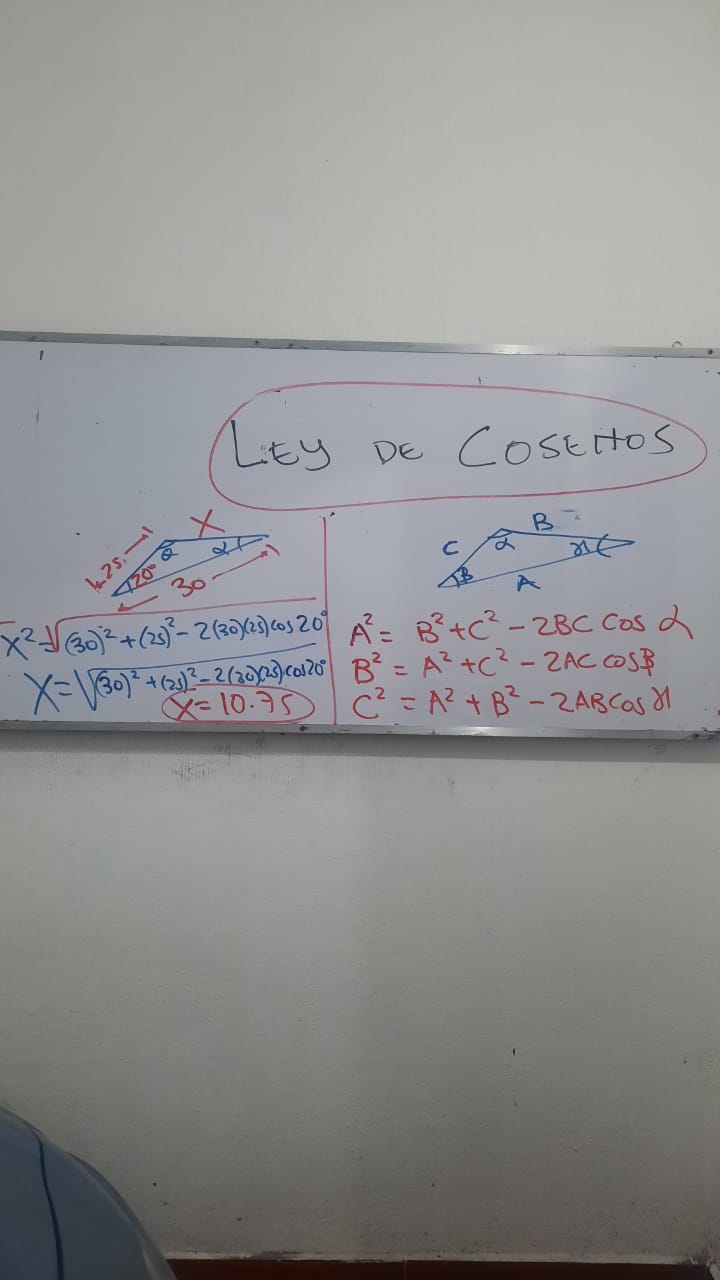 LEY DE COSENOS
X
25
α
α
20°
30
X² = √(30)² + (25)² - 2(30)(25) cos 20°
X = √(30)² + (25)² - 2(30)(25) cos 20°
X = 10.75
B
C
α
γ
β
A
A² = B² + C² - 2BC COS α
B² = A² + C² - 2AC COS β
C² = A² + B² - 2AB COS γ